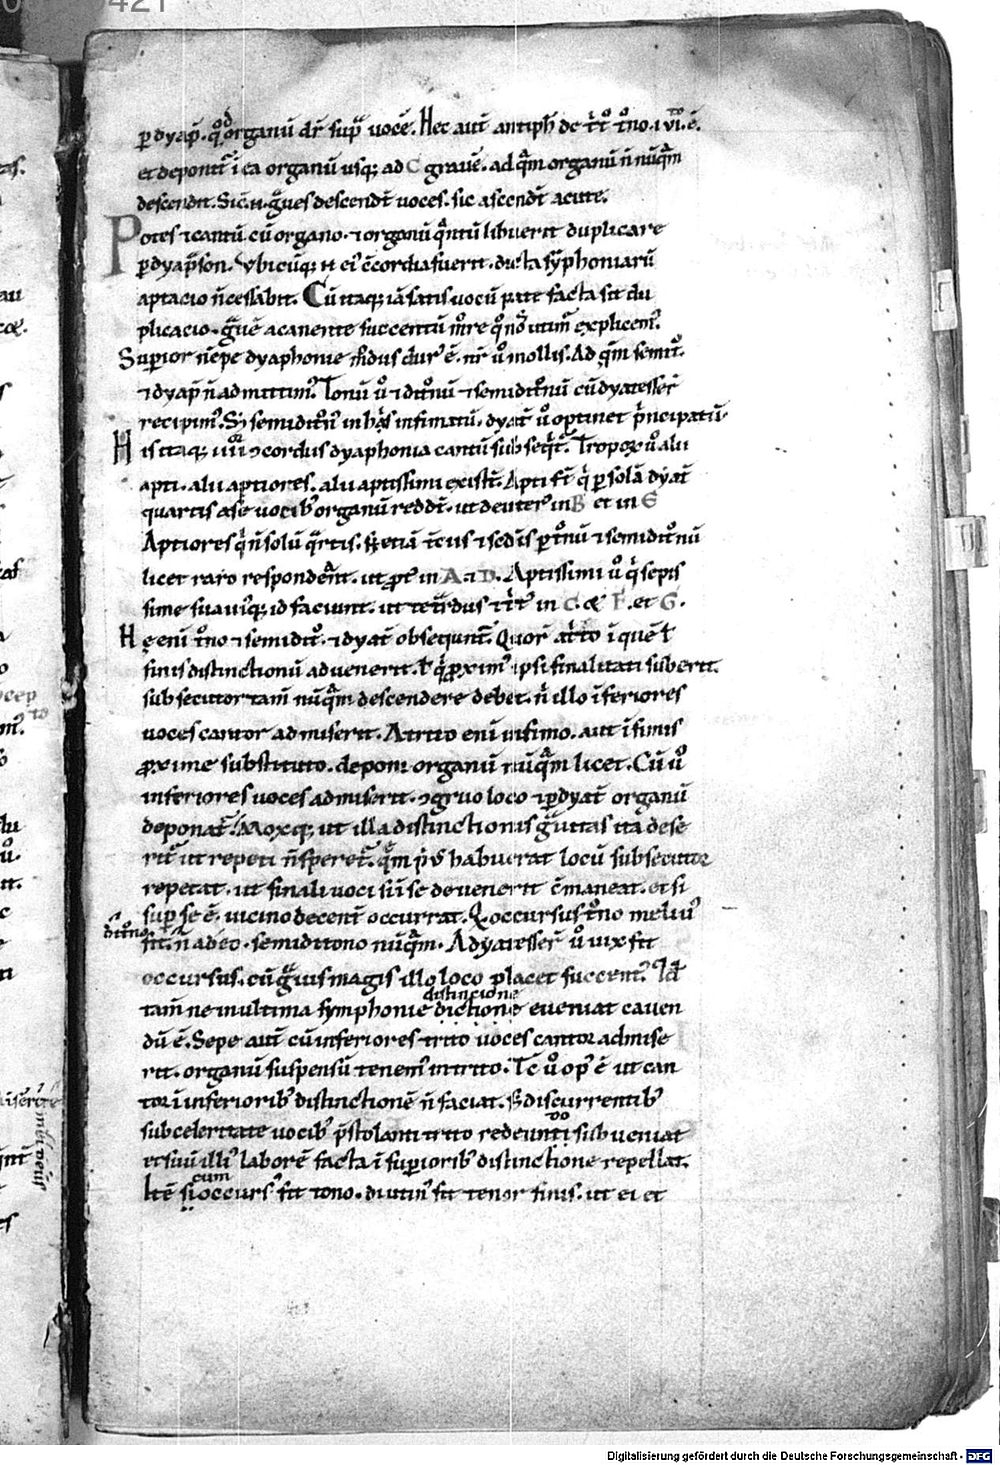 ꝑ dyap̄. qͦd organū dr̄ sup͛ uocē. Hec aut̄ antiph̄ de t͛t tͦno. i. vi. ē.
et deponit͛ ī ea organū usq; ad C grauē. ad q͛m organū n̄ nūq͛m
descendit. Sic̄. n. g͛ues descendt̄ uoces. sic ascendt̄ acute.
Potes ⁊ cantū cū organo. ⁊ organū q͛ntū libuerit duplicare
ꝑ dyap͛son. Vbicūq; n̄ ei᷒ c̄cordia fuerit. dicta sȳphoniarū
aptacio n̄ cessabit. Cū itaq; iā satis uocū pat͛ facta sit du
plicacio. g͛uē a canente succentū m̄re qͦ nͦs utim᷒ explicem᷒.
Supior nēpe dyaphonie mͦdus dur᷒ ē. nr̄ uͦ mollis. Ad q͛m semit̄.
⁊ dyap̄ n̄ admittim᷒. Tonū uͦ ⁊ ditͦnū ⁊ semiditͦnū cū dyatesser̄
recipim᷒. S; semiditͦn᷒ in h͛s infimatū. dyat̄ uͦ optinet p͛ncipatū.
His itaq; iiiiͦꝛ ↄcordiis dyaphonia cantū subseq͛t͛. Tropoꝝ uͦ alii
apti. alii aptiores. alii aptissimi existt̄. Apti st̄ q͛ ꝑ solā dyat̄
quartis a se uocib᷒ organū reddt̄. ut deuter᷒ in B et in E
Aptiores q͛ n̄ solū q͛rtis. s; etiā tc̄iis ⁊ scd̄is ꝑ tͦnū ⁊ semiditͦnū
licet raro respondent. ut ꝓt᷒ in A. ⁊ D. Aptissimi uͦ q͛ sepis
sime suauiꝰq; id faciunt. ut tet͛rdus ⁊ t͛t᷒ in C. & F. et G.
He eni᷒ tͦno ⁊ semidit̄. ⁊ dyat̄ obsequnt͛. Quoꝝ at͛ito ī quē ł
finis distinctionū aduenerit. ł q͛ ꝓxim᷒ ipsi finalitati suberit.
subsecutor tam̄ nūq͛m descendere debet. n͛ illo īferiores
uoces cantor admiserit. A trito eni᷒ infimo. aut īfimis
ꝓxime substituto. deponi organū nūq͛m licet. Cū uͦ
inferiores uoces admiserit. ↄgruo loco ⁊ ꝑ dyat̄ organū
deponat͛. Moxq; ut illa distinctionis g͛uitas ita dese
rit͛ ut repeti n̄ speret͛. q͛m p͛us habuerat locū subsecutor
repetat. ut finali uoci si ī se deuenerit c̄maneat. et si
sup͛ se ē. uicino decent͛ occurrat. Q occursus tͦno meli᷒
ditͦno fit. n̄ adeo. semiditono nūq͛m. A dyatesser̄ uͦ uix fit
occursus. cū g͛uis magis illo loco placet succent᷒. Id̄
tam̄ ne in ultima symphonie dictione distincione eueniat cauen
dū ē. Sepe aut̄ cū inferiores trito uoces cantor admise
rit. organū suspensū tenem᷒ in trito. Tc̄ uͦ op᷒ ē ut can
tor ī inferiorib᷒ distinctionē n̄ faciat. s; discurrentib᷒
sub celeritate uocib᷒ p͛stolanti trito redeundo subueniat
et suū illi᷒ laborē facta ī superiorib᷒ distinctione repellat.
Itē cum occurs᷒ fit tono. diutin᷒ fit tenor finis. ut ei et
Digitalisierung gefördert durch die Deutsche Forschungsgemeinschaft - DFG